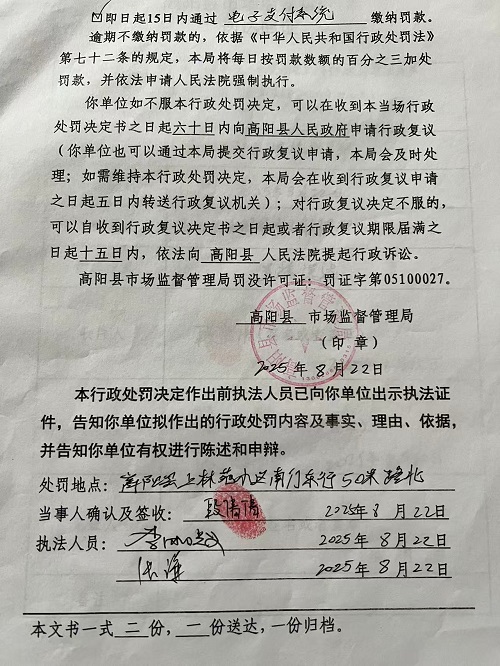 ☑即日起15日内通过 电子支付系统 缴纳罚款。
逾期不缴纳罚款的，依据《中华人民共和国行政处罚法》
第七十二条的规定，本局将每日按罚款数额的百分之三加处
罚款，并依法申请人民法院强制执行。
你单位如不服本行政处罚决定，可以在收到本当场行政
处罚决定书之日起六十日内向高阳县人民政府申请行政复议
（你单位也可以通过本局提交行政复议申请，本局会及时处
理；如需维持本行政处罚决定，本局会在收到行政复议申请
之日起五日内转送行政复议机关）；对行政复议决定不服的，
可以自收到行政复议决定书之日起或者行政复议期限届满之
日起十五日内，依法向 高阳县 人民法院提起行政诉讼。
高阳县市场监督管理局罚没许可证：罚证字第05100027。
高阳县 市场监督管理局
（印 章）
2025年 8月 22日
本行政处罚决定作出前执法人员已向你单位出示执法证
件，告知你单位拟作出的行政处罚内容及事实、理由、依据，
并告知你单位有权进行陈述和申辩。
处罚地点：高阳县上林苑小区南门东行50米路北
当事人确认及签收：段倩倩 2025年8月22日
执法人员： 2025年8月22日
2025年8月22日
本文书一式 二 份，一 份送达，一份归档。